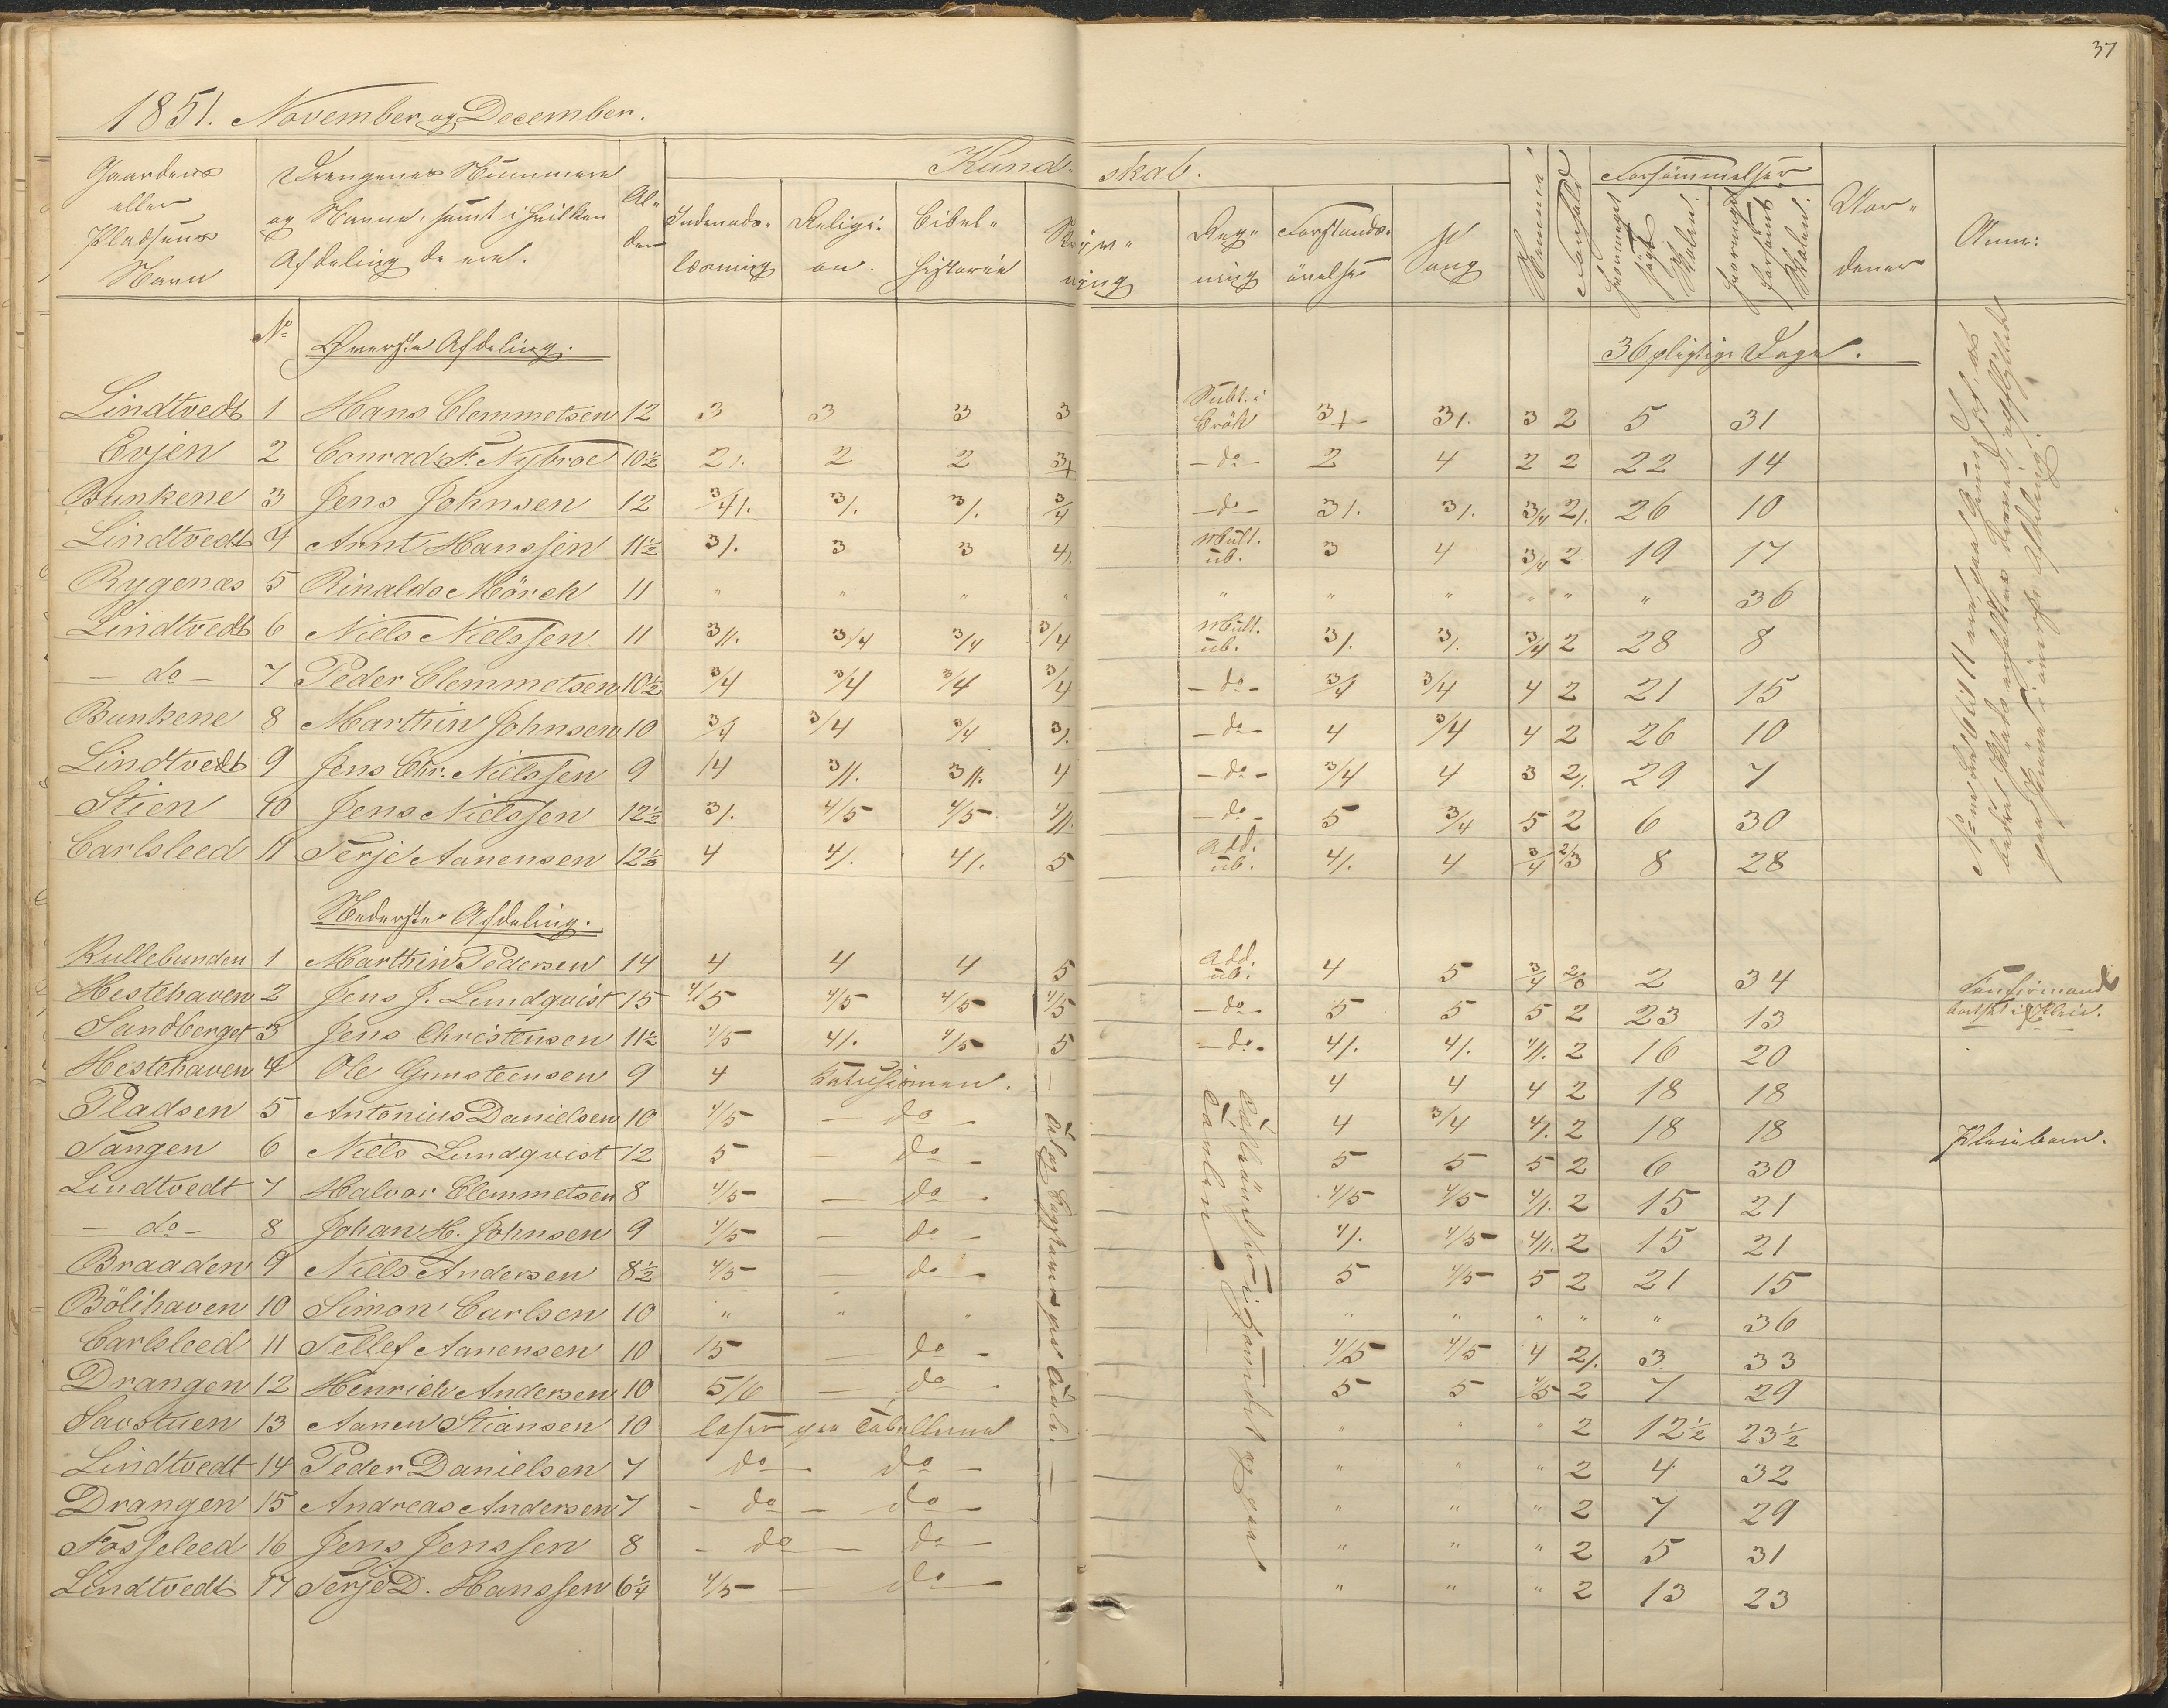 37
1851. November og December.
Gaardens eller Pladsens Navn
Drengenes Nummere og Navne, samt i hvilken Afdeling de ere.
Al- der
Kund- skab.
Indenads- læsning
Religi- on.
Bibel- historie
Skriv- ning
Reg- ning
Forstands- øvelse
Sang
Nemme
Forhold
Forsømmelser
hvormeget søgt Skolen.
hvormeget forsømt Skolen.
Vær- dener
Anm:
No Øverste Afdeling.
36 pligtige Dage.
Lindtvedt 1 Hans Clemmetsen 12 3 3 3 3 Subt. i Brøk 3+ 3/. 3 2 5 31
Evjen 2 Conrad F. Nybroe 10½ 2/. 2 2 3+ -do- 2 4 2 2 22 14
Bunkene 3 Jens Johnsen 12 3/4/. 3/. 3/. 3/4 -do- 3/. 3/. 3/4 2/. 26 10
Lindtvedt 4 Arnt Hanssen 11½ 3/. 3 3 4/. Mult. ub. 3 4 3/4 2 19 17
Rygenæs 5 Rinaldo Mörch 11 " " " " " " " " " " 36
Lindtvedt 6 Niels Nielssen 11 3//. 3/4 3/4 3/4 Mult. ub. 3/. 3/. 3/4 2 28 8
- do - 7 Peder Clemmetsen 10½ 3/4 3/4 3/4 3/4 -do- 3/4 3/4 4 2 21 15
Bunkene 8 Marthin Johnsen 10 3/4 3/4 3/4 3/. -do- 4 3/4 4 2 26 10
Lindtvedt 9 Jens Chr. Nielssen 9 /4 3//. 3//. 4 -do- 3/4 4 3 2/. 29 7
Stien 10 Jens Nielssen 12½ 3/. 4/5 4/5 4//. -do- 5 3/4 5 2 6 30
Carlsleed 11 Terje Aanensen 12½ 4 4/. 4/. 5 Add. ub. 4/. 4 3/4 2/3 8 28
Nederste Afdeling.
Rullebunden 1 Marthin Pedersen 14 4 4 4 5 Add. ub. 4 5 3/4 2/0 2 34
Hestehaven 2 Jens J. Lundqvist 15 4/5 4/5 4/5 4/5 -do- 5 5 5 2 23 13
Sandberget 3 Jens Christensen 11½ 4/5 4/. 4/5 5 -do- 4/. 4/. 4//. 2 16 20
Hestehaven 4 Ole Gunsteensen 9 4 4 4 4 2 18 18
Pladsen 5 Antonius Danielsen 10 4/5 - do - 4 3/4 4/. 2 18 18
Tangen 6 Niels Lundqvist 12 5 - do - 5 5 5 2 6 30
Lindtvedt 7 Halvor Clemmetsen 8 4/5 - do - 4/5 4/5 4/. 2 15 21
- do - 8 Johan H. Johnsen 9 4/5 - do - 4/. 4/5 4//. 2 15 21
Braaden 9 Niels Andersen 8½ 4/5 - do - 5 4/5 5 2 21 15
Bölihaven 10 Simon Carlsen 10 " " " " " " " " 36
Carlsleed 11 Tellef Aanensen 10 /5 do - 4/5 4/5 4 2/. 3 33
Drangen 12 Henrich Andersen 10 5/6 - do - 5 5 4/5 2 7 29
Savstuen 13 Aanen Stiansen 10 læser paa Tabellerne " " " 2 12½ 23½
Lindtvedt 14 Peder Danielsen 7 do - do - " " " 2 4 32
Drangen 15 Andreas Andersen 7 - do - do - " " " 2 7 29
Fosseleed 16 Jens Jenssen 8 - do - do - " " " 2 5 31
Lindtvedt 17 Terje D. Hanssen 6¼ 4/5 - do - " " " 2 13 23